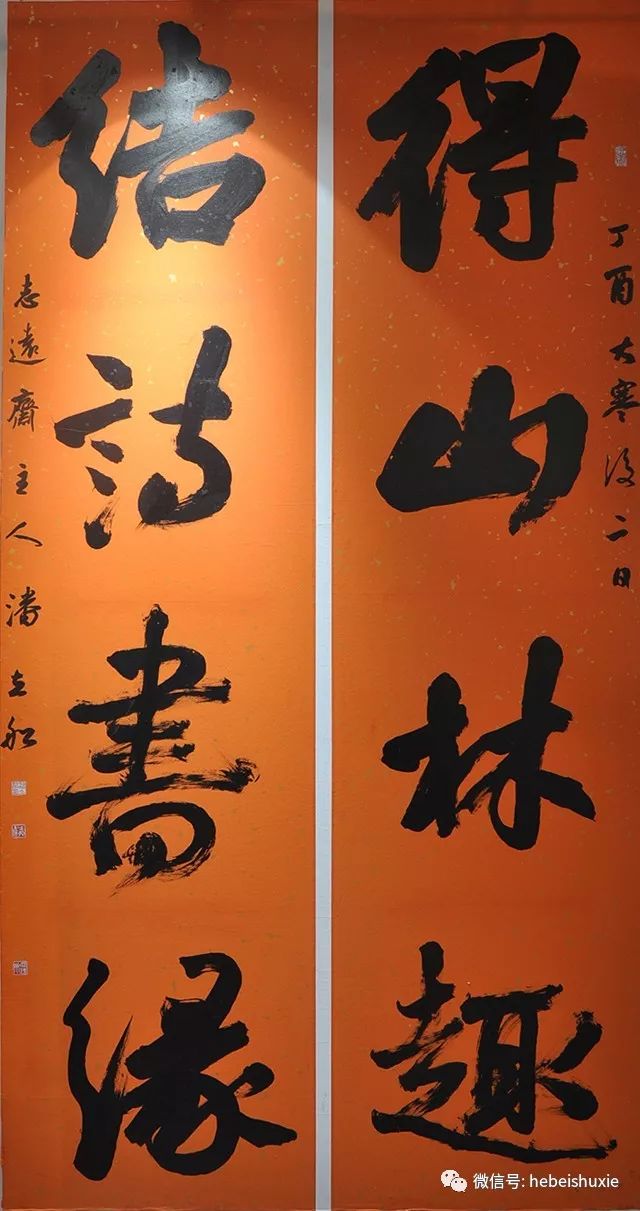 丁酉大寒後二日
得山林趣
结诗書缘
志遠齋主人潘立船
微信号: hebeishuxie